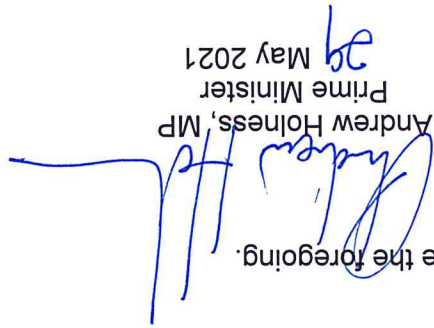 e the foregoing.
Andrew Holness
Andrew Holness, MP
Prime Minister
29 May 2021